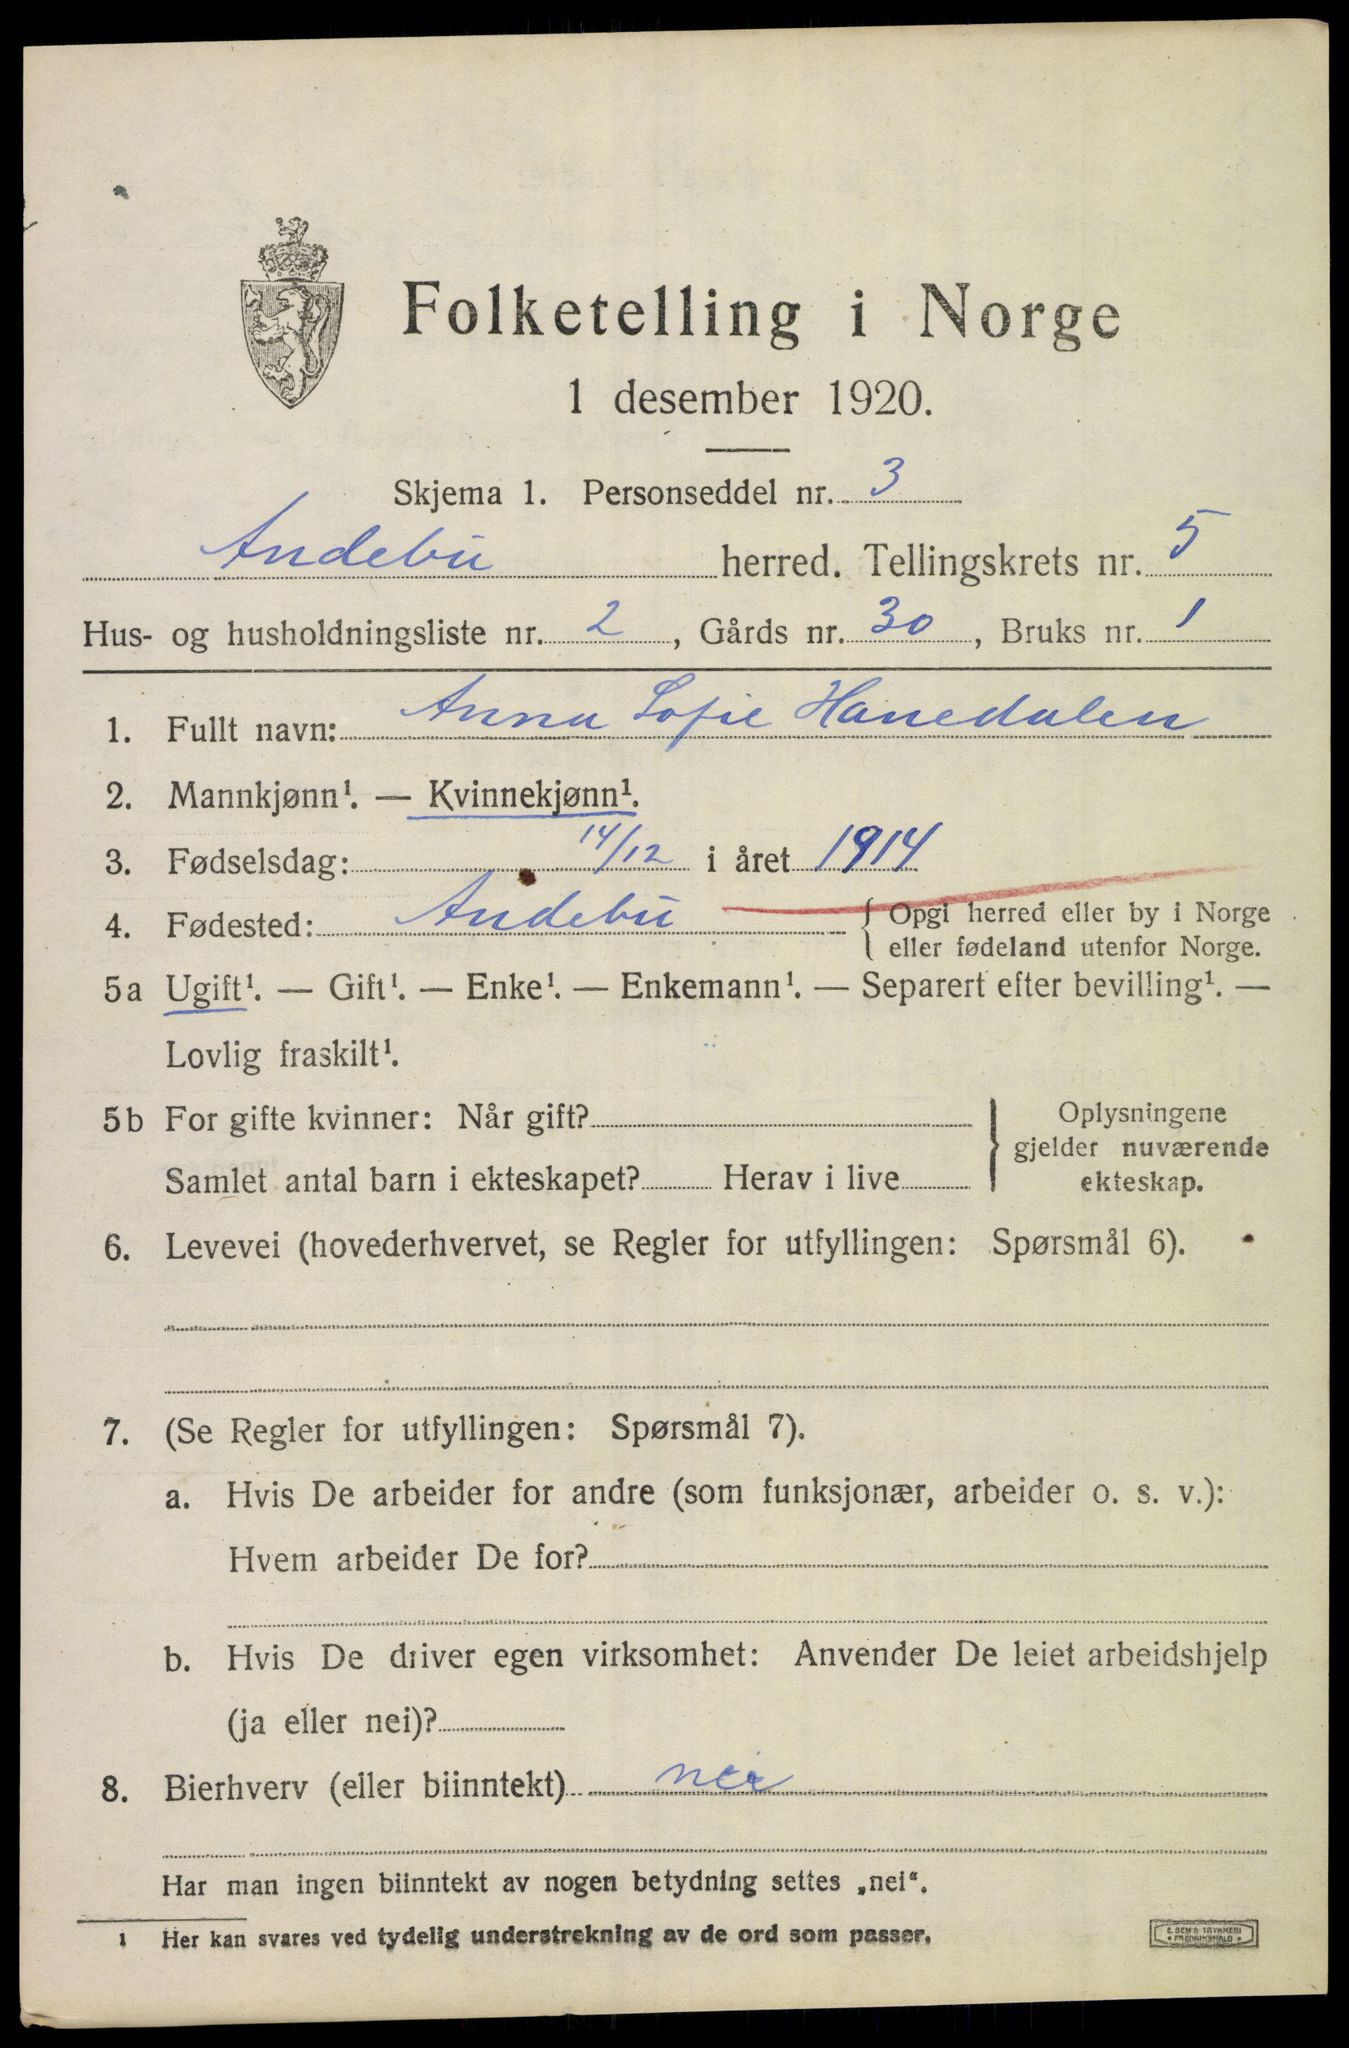 Folketelling i Norge
1 desember 1920.
Skjema 1. Personseddel nr. 3
Andebu herred. Tellingskrets nr. 5
Hus- og husholdningsliste nr. 2, Gårds nr. 30, Bruks nr. 1
1. Fullt navn: Anna Sofie Hanedalen
2. Mannkjønn¹. — Kvinnekjønn¹.
3. Fødselsdag: 14/12 i året 1914
4. Fødested: Andebu { Opgi herred eller by i Norge
eller fødeland utenfor Norge.
5a Ugift¹. — Gift¹. — Enke¹. — Enkemann¹. — Separert efter bevilling¹. —
Lovlig fraskilt¹.
5b For gifte kvinner: Når gift? } Oplysningene
gjelder nuværende
Samlet antal barn i ekteskapet? Herav i live ekteskap.
6. Levevei (hovederhvervet, se Regler for utfyllingen: Spørsmål 6).
7. (Se Regler for utfyllingen: Spørsmål 7).
a. Hvis De arbeider for andre (som funksjonær, arbeider o. s. v.):
Hvem arbeider De for?
b. Hvis De driver egen virksomhet: Anvender De leiet arbeidshjelp
(ja eller nei)?
8. Bierhverv (eller biinntekt) nei
Har man ingen biinntekt av nogen betydning settes „nei“.
1 Her kan svares ved tydelig understrekning av de ord som passer.
E. SEM'S TRYKKERI
FREDRIKSHALD